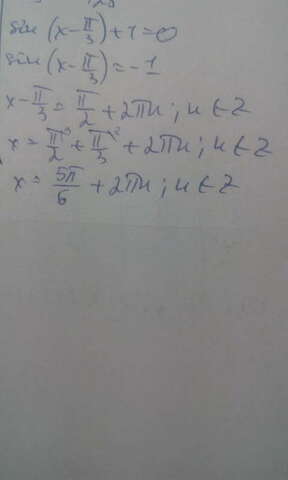 sin (x - π/3) + 1 = 0
sin (x - π/3) = -1
x - π/3 = π/2 + 2πn; n ∈ Z
x = π³/2 + π²/3 + 2πn; n ∈ Z
x = 5π/6 + 2πn; n ∈ Z